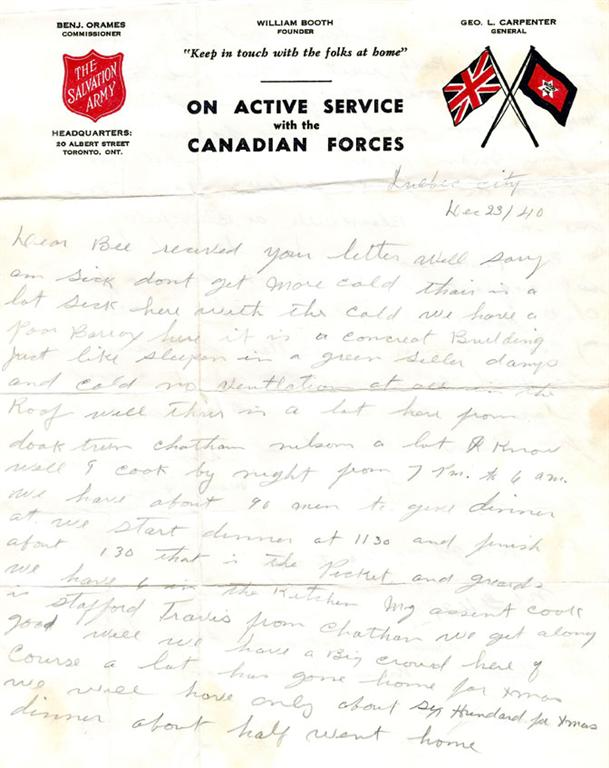 BENJ. ORAMES
COMMISSIONER
WILLIAM BOOTH
FOUNDER
GEO. L. CARPENTER
GENERAL
"Keep in touch with the folks at home"
THE
SALVATION
ARMY
ON ACTIVE SERVICE
with the
CANADIAN FORCES
HEADQUARTERS:
20 ALBERT STREET
TORONTO, ONT.
Quebec City
Dec 23/40
Dear Bee received your letter will sorry
am sick dont get more cold thair is a
lot sick here with the cold we have a
Poor here it is a concreat Building
Just like sleepen in a green seller damp
and cold no ventlation at all in the
Roof well thair is a lot here from
doak town chatham nelson a lot I know
well I cook by night from 7 Pm. to 6 am.
we have about 90 men to give dinner
at. we start dinner at 1130 and finish
about 130 that is the Picket and geards
we have 6 in the Kitchen my assent cook
is Stafford Travis from Chatham we get along
good well we have a Big crowd here of
course a lot has gone home for xmas
we will have only about six Hundard for Xmas
dinner about half went home